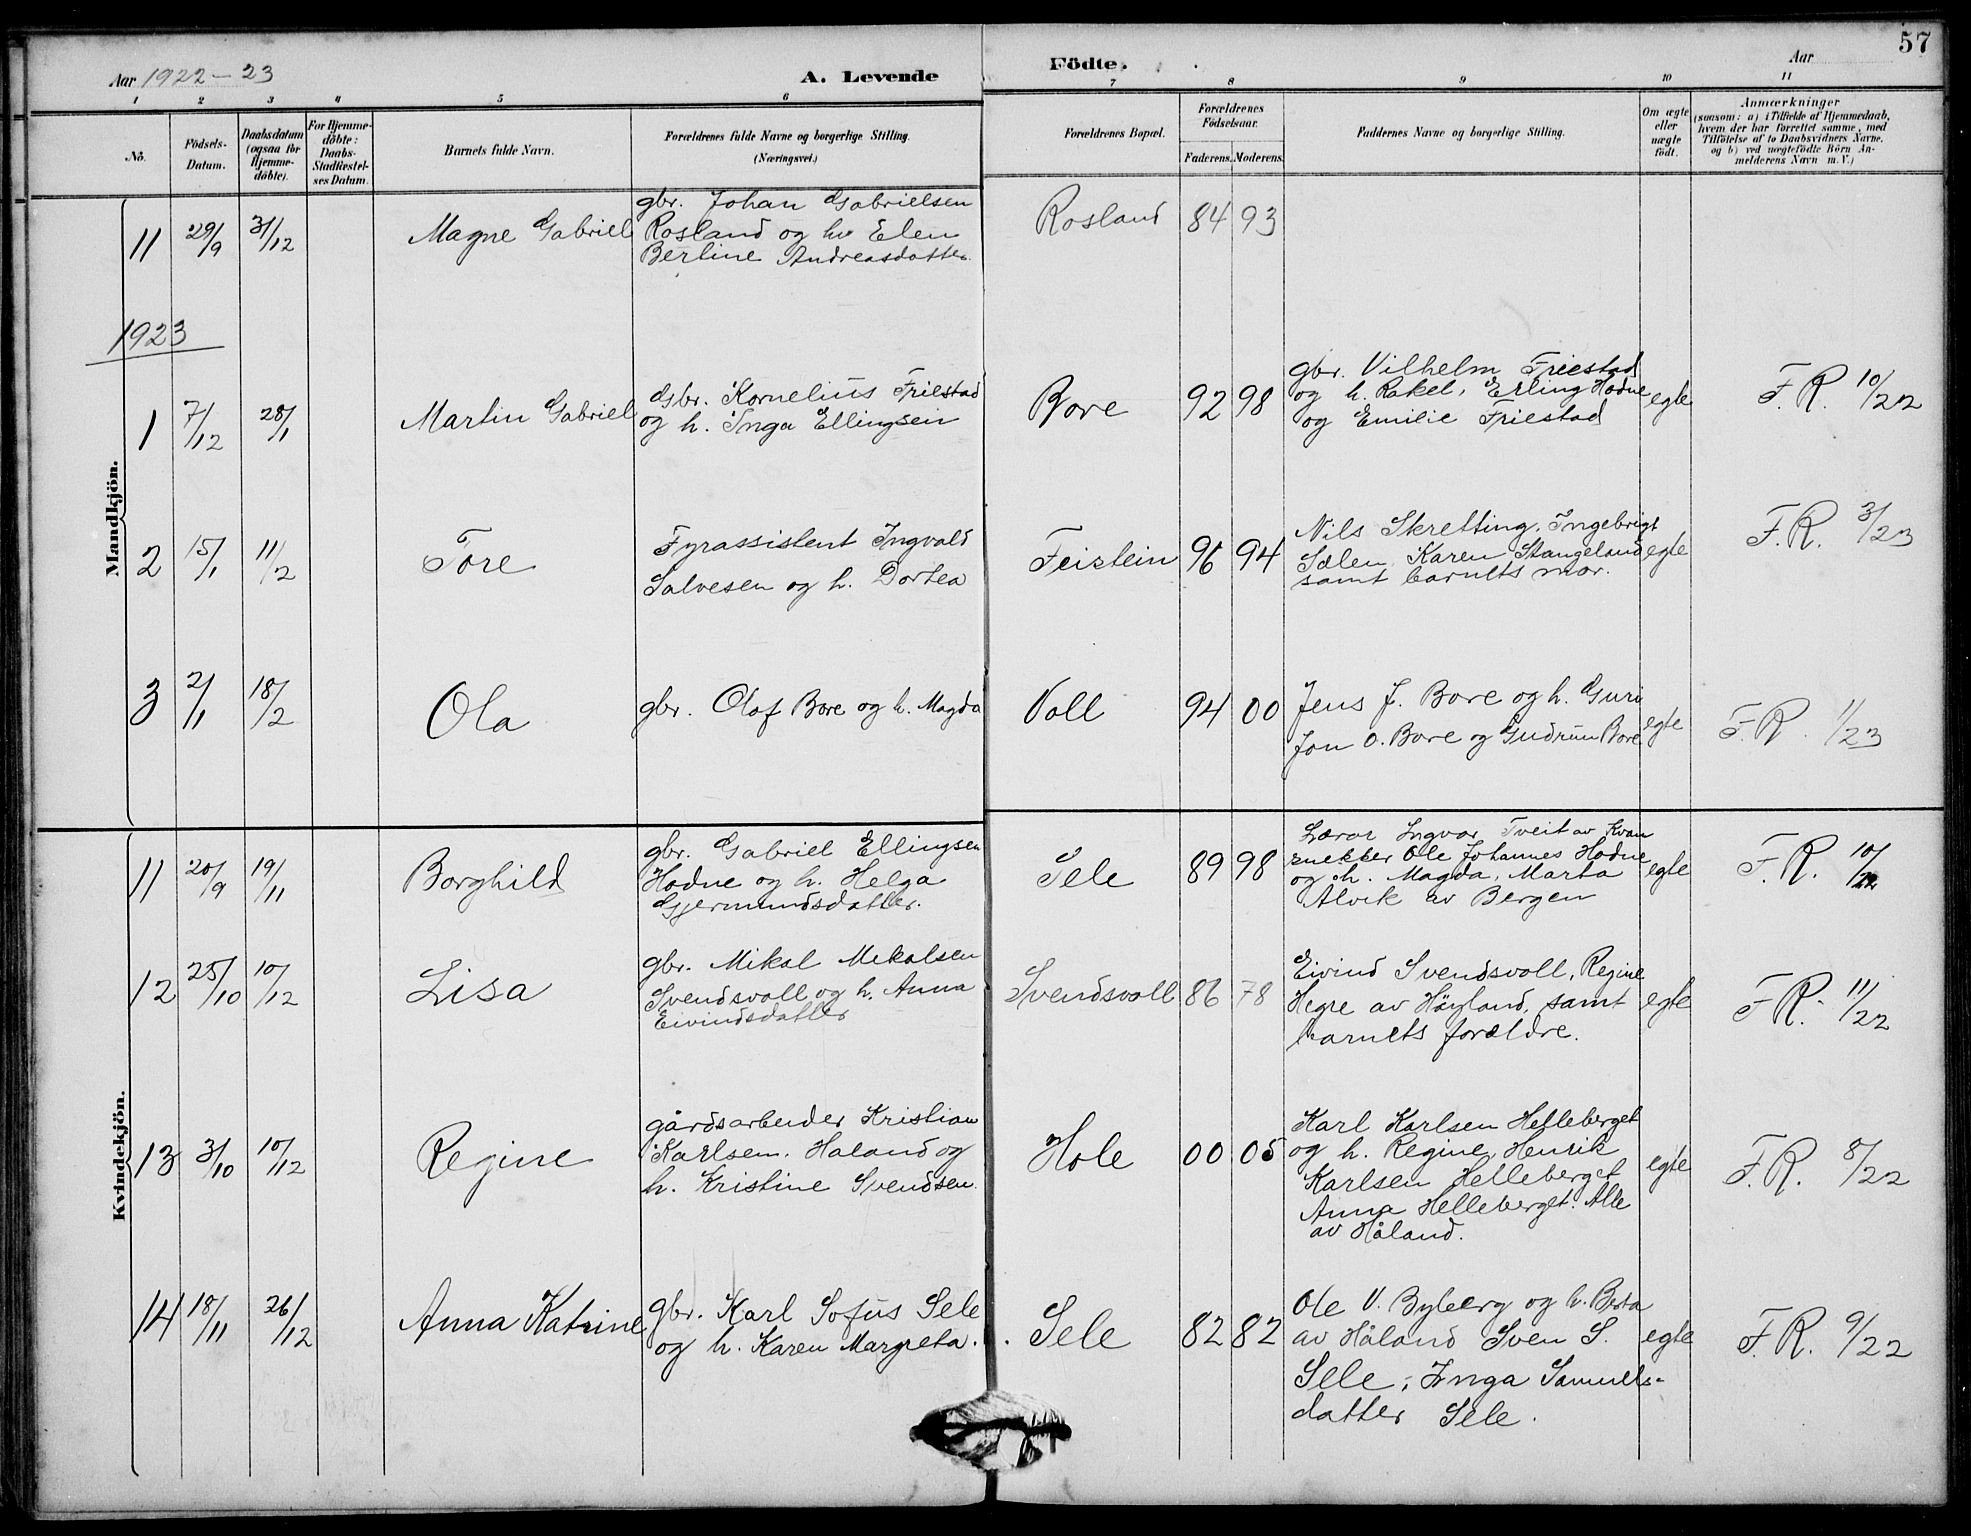 57
Aar 1922-23
A. Levende
Födte.
Aar
1 2 3 4 5 6 7 8 9 10 11
No.
Födsels-
Datum.
Daabsdatum
(ogsaa for
Hjemme-
döbte).
For Hjemme-
döbte:
Daabs-
Stadfæstel-
ses Datum.
Barnets fulde Navn.
Forældrenes fulde Navne og borgerlige Stilling.
(Næringsvei.)
Forældrenes Bopæl.
Forældrenes
Födselsaar.
Faderens. Moderens.
Faddernes Navne og borgerlige Stilling.
Om ægte
eller
uægte
födt.
Anmærkninger
(saasom: a) i Tilfælde af Hjemmedaab,
hvem der har forrettet samme, med
Tilföielse af to Daabsvidners Navne.
og b) ved uægtefödte Börn An-
melderens Navn m. V.)
Mandkjön.
11 29/9 31/12 Magne Gabriel
gbr. Johan Gabrielsen
Rosland og hu Elen
Berline Andreasdatter.
Rosland 84 93
1923
1 7/12 28/1 Martin Gabriel
Gbr. Kornelius Friestad
og h. Inga Ellingsen
Bore 92 98
gbr. Vilhelm Friestad
og h. Rakel, Erling Hodne
og Emilie Friestad
egte F.R. 10/22
2 15/1 11/2 Tore
Fyrassistent Ingvald
Salvesen og h. Dortea
Feistein 96 94
Nils Skretting, Ingebrigt
Sælen, Karen Stangeland
samt barnets mor.
egte F.R. 3/23
3 2/1 18/2 Ola
gbr. Olaf Bore og h. Magda
Voll 94 00
Jens J. Bore og h. Guri
Jon O. Bore og Gudrun Bore
egte F.R. 11/23
Kvindekjön.
11 20/9 19/11 Borghild
gbr. Gabriel Ellingsen
Hodne og h. Helga
Gjermundsdatter.
Sele 89 98
Lærer Ingvar Tveit av Kvam
snekker Ole Johannes Hodne
og h. Magda, Marta
Alvik av Bergen
egte F.R. 10/22
12 25/10 10/12 Lisa
gbr. Mikal Mikalsen
Svendsvoll og h. Anna
Eivindsdatter
Svendsvoll 86 78
Eivind Svendsvoll, Regine
Hegre av Höyland, samt
barnets forældre.
egte F.R. 11/22
13 3/10 10/12 Regine
gårdsarbeider Kristian
Karlsen. Håland og
h. Kristine Svendsen.
Hole 00 05
Karl Karlsen Helleberget
og h. Regine, Henrik
Karlsen Helleberget
Anna Helleberget. Alle
av Håland.
egte F.R. 8/22
14 18/11 26/12 Anna Katrine
gbr. Karl Sofus Sele
og h. Karen Margreta.
Sele 82 82
Ole V. Byberg og h. Berta
av Håland Sven S.
Sele, Inga Samuels-
datter Sele.
egte F.R. 9/22